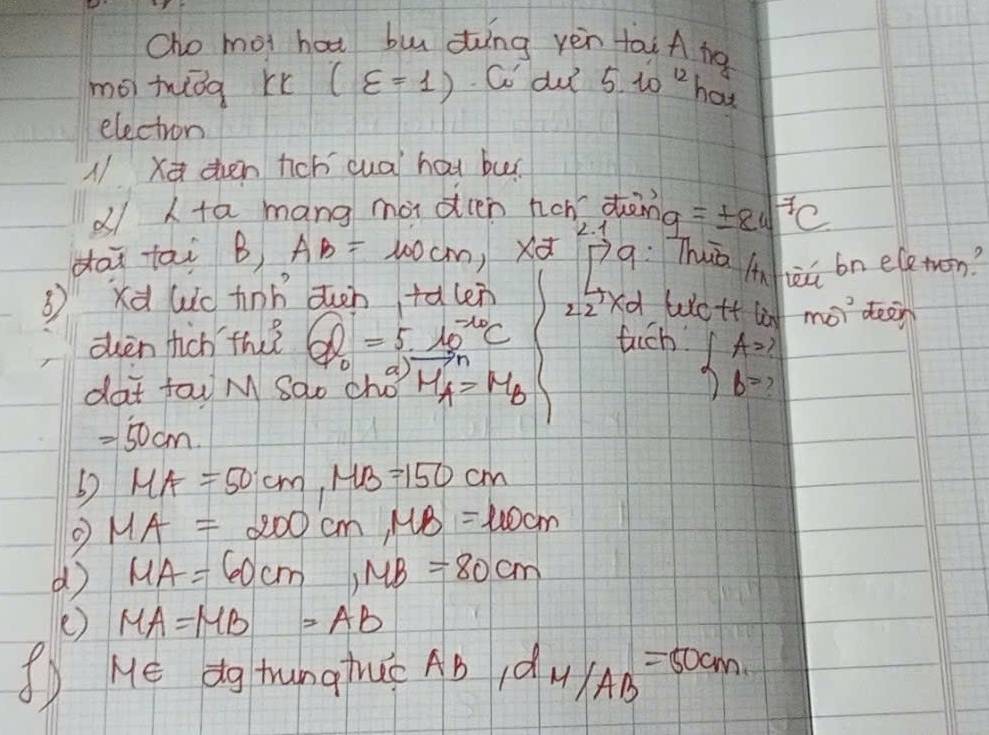 Cho một hạt bụi đứng yên tại A trg
môi trường kk (ε = 1). Có dư 5.10¹² hạt
electron
1/ Xđ điện tích của hạt bụi.
2/ ta mang một điện tích điểm q = ±8.10⁻⁷C
đặt tại B, AB = 100cm, xđ 2.1 q: Thừa / thiếu bn eletron?
2.2 xđ lực tt lên mỗi điện
tích { A=? B=?
3) Xđ lực tĩnh điện td lên
điện tích thử Q₀ = 5.10⁻¹⁰C
đặt tại M sao cho a) MA = MB
= 50cm.
b) MA = 50cm, MB = 150cm
c) MA = 200cm, MB = 100cm
d) MA = 60cm, MB = 80cm
e) MA = MB = AB
f) M ∈ đg trung trực AB, d M/AB = 50cm.